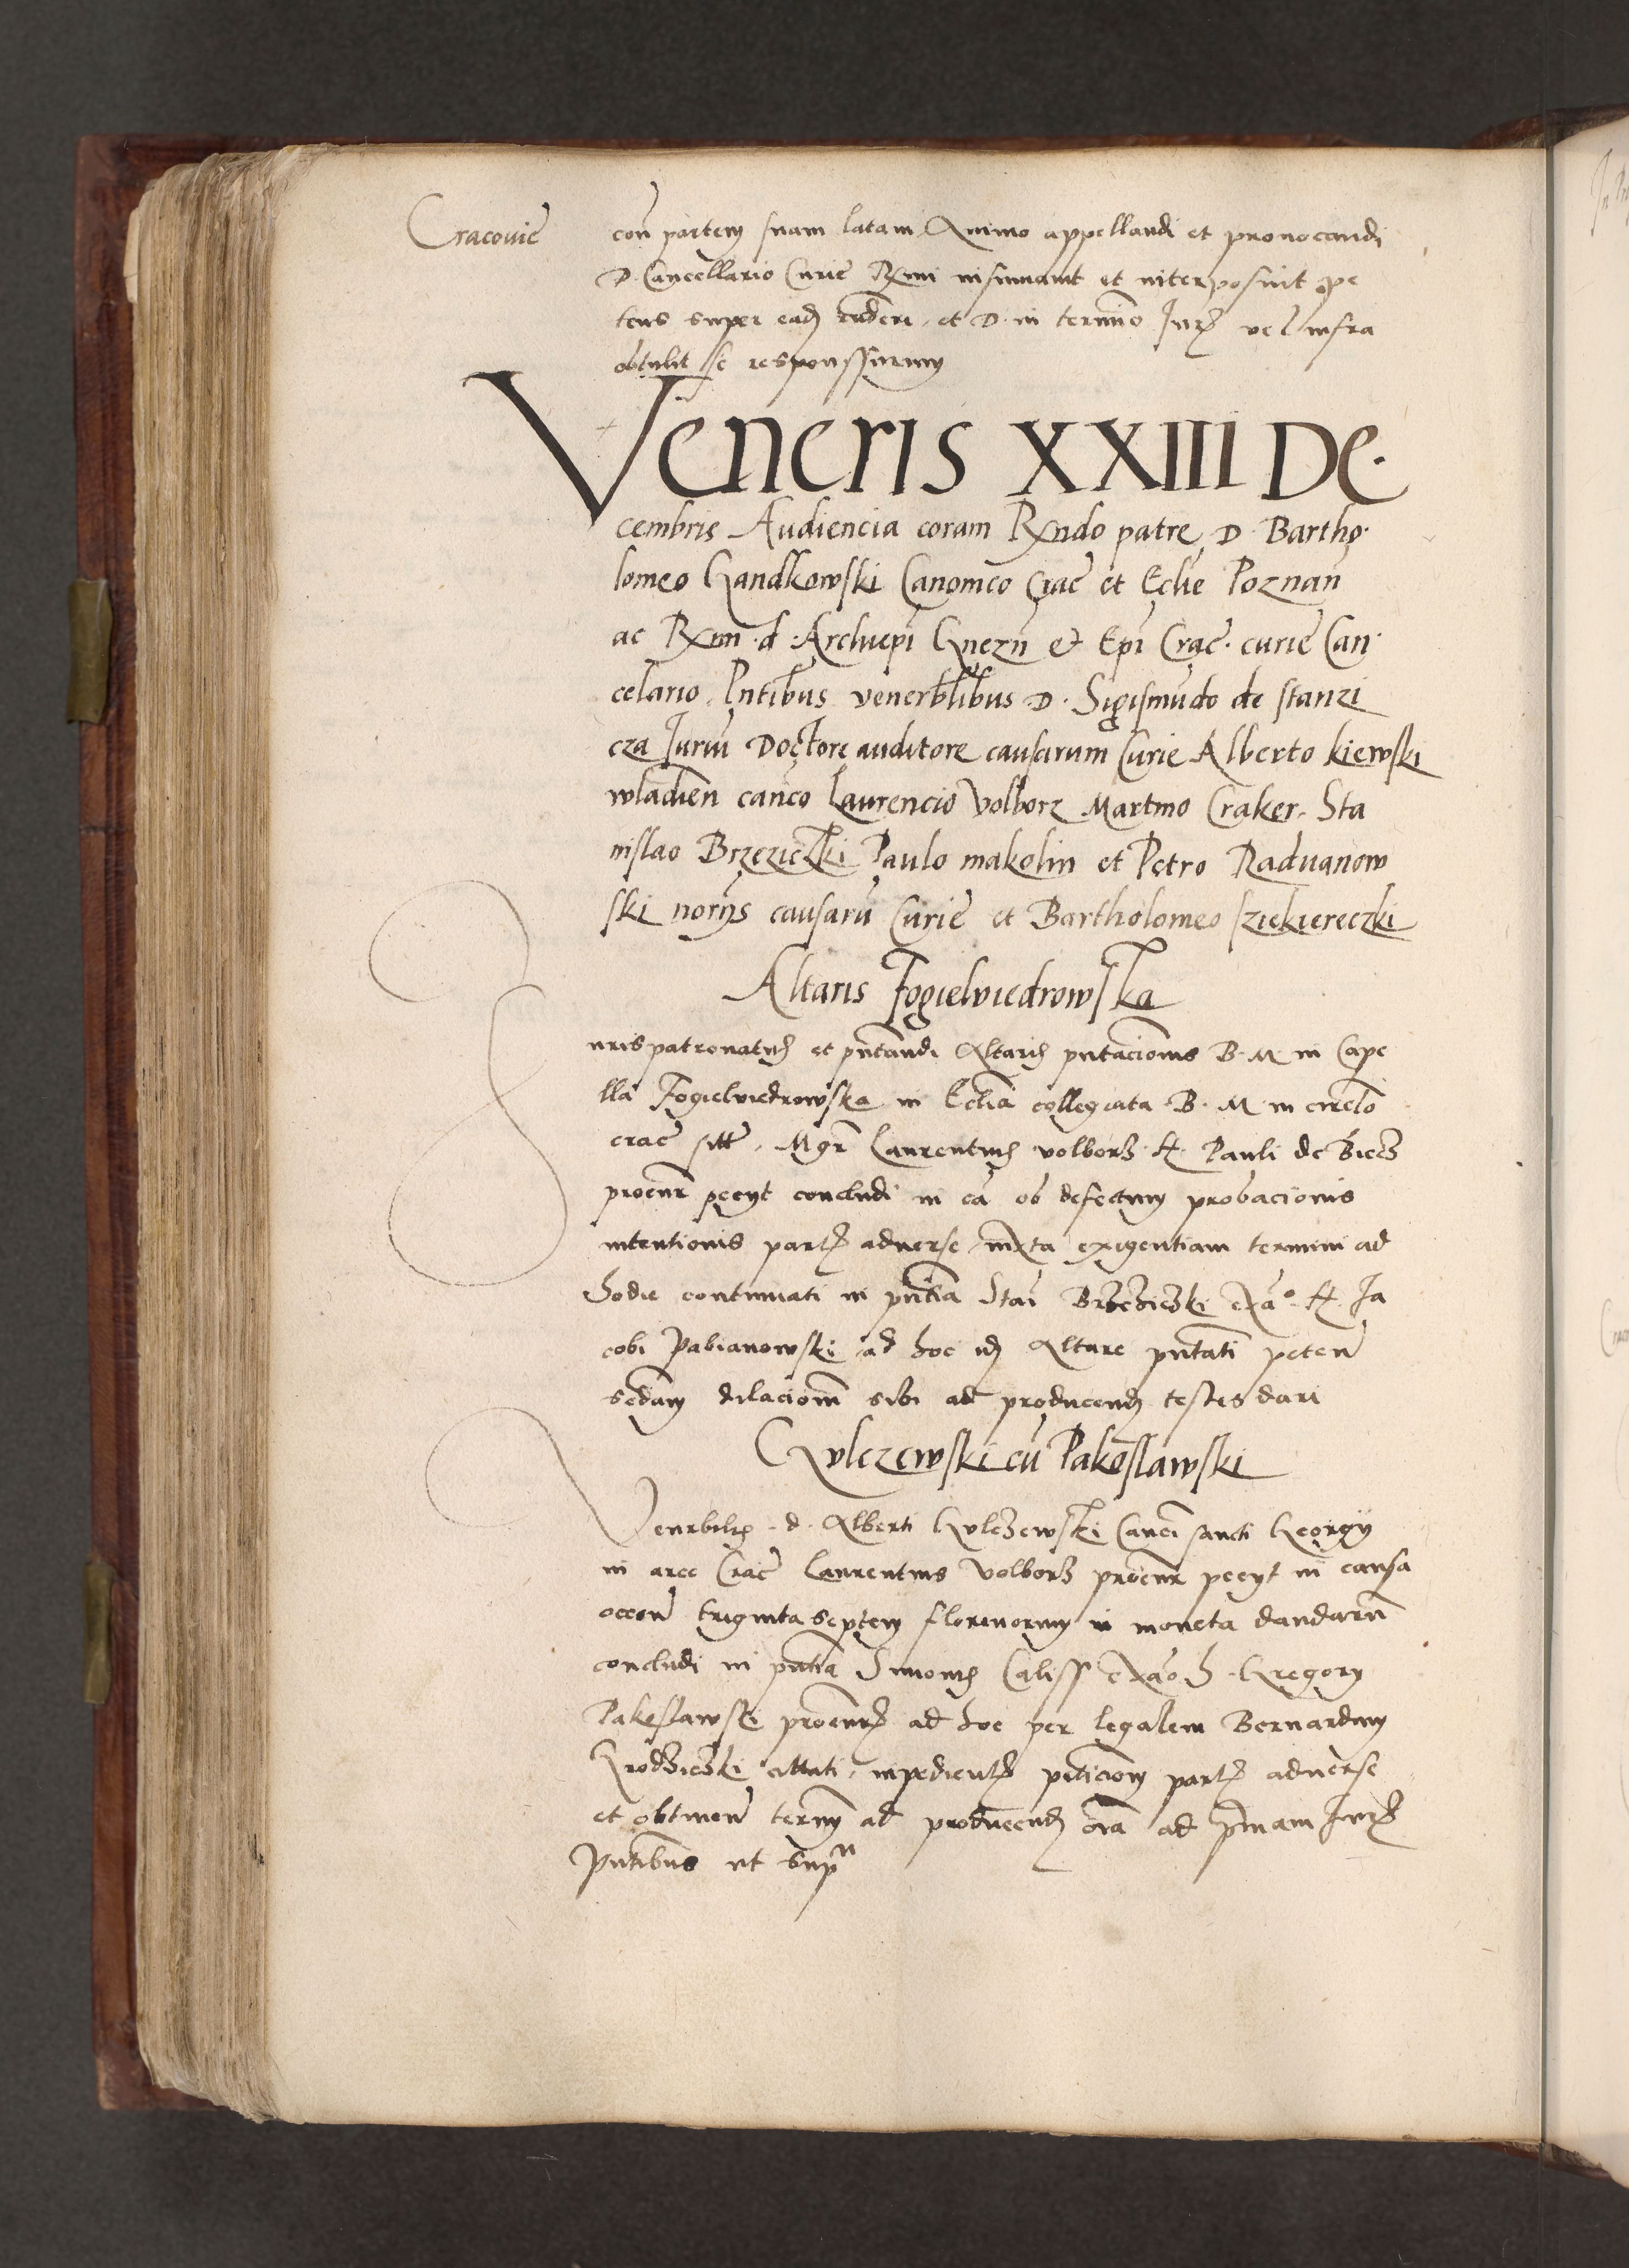 Cracovie
con̄ partem suam latam Animo appellandi et provocandi
D. Cancellario Curie Rxmi insinuavit et interposuit pe
tens super eadem  et D. in termino Juris vel infra
obtulit se responssurum
Veneris XXIII De-
cembris Audiencia coram Rxndo patre D. Bartho-
lomeo Gandkowski Canonico Crac̄ et Eclīe Poznan̄
ac Rxmi d. Archiepī Gnezn̄ et Epī Crac̄. curie Can-
celario. Pntībus venerblībus D. Sigismūdo de stanzi
cza Juriū Doctore auditore causarum Curie Alberto kiewski
wladien̄ canco Laurencio Volborz Martino Craker. Sta
nislao Brzeziczki Paulo makolin et Petro Raduanow
ski norijs causarū Curie et Bartholomeo sziekiereczki
Altaris Fogielviedrowska
Juris patronatus et pntandi Altaris pntacionis B. M. in Cape
lla Fogielviedrowska in Eclīa collegiata B. M. in circlo
crac̄ sitt̄. Mgr̄ Laurentius volborz H. Pauli de Biecz
procur̄ pecyt concludi in cā ob defectum probacionis
intentionis partis adverse iuxta exigentiam termini ad
hodie continuati in pntīa Stai Brzeziczki exāo. H. Ja
cobi Pabianowski ad hoc idem Altare pntati peten̄
sedam dilacionem sibi ad producendum testes dari
Gulczewski cū Pakoslawski
Venrbilis. d. Alberti Gulczewski Canci sancti Georgij
in arce Crac̄ Laurentius Volborz procur̄ pecyt in causa
occon̄ triginta septem florenorum in moneta dandarū
concludi in pntīa Simonis Caliss exāo H. Gregory
Pakoslawski procuris ad hoc per legalem Bernardum
Grodziczki cittati, inpedientis peticionem partis adverse
et obtinen̄ termin ad producendum ōia ad primam Juris
Pntibus ut supra